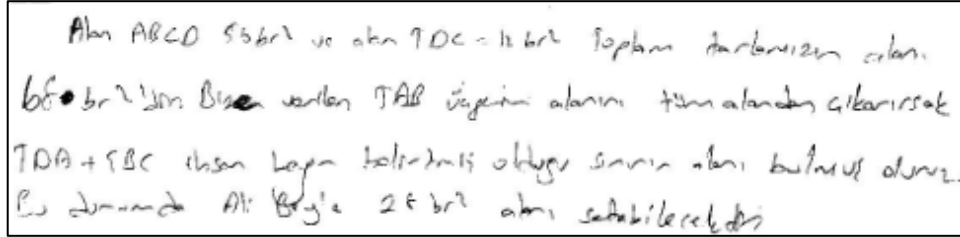 Alan ABCD 56br² ve alan TDC = 12 br² Toplam tarlamızın alanı
68 br²'dir. Bize verilen TAB üçgenin alanını tüm alandan çıkarırsak
TDA + TBC ihsan beyin belirlemiş olduğu sınırın alanı bulmuş oluruz.
Bu durumda Ali Bey'e 28 br² alanı satabilecektir